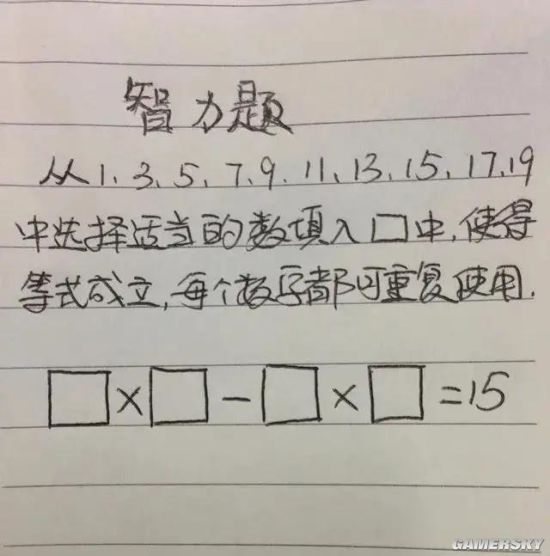 智力题
从1、3、5、7、9、11、13、15、17、19
中选择适当的数填入□中,使得
等式成立,每个数字都可重复使用.
□×□-□×□=15
GAMERSKY